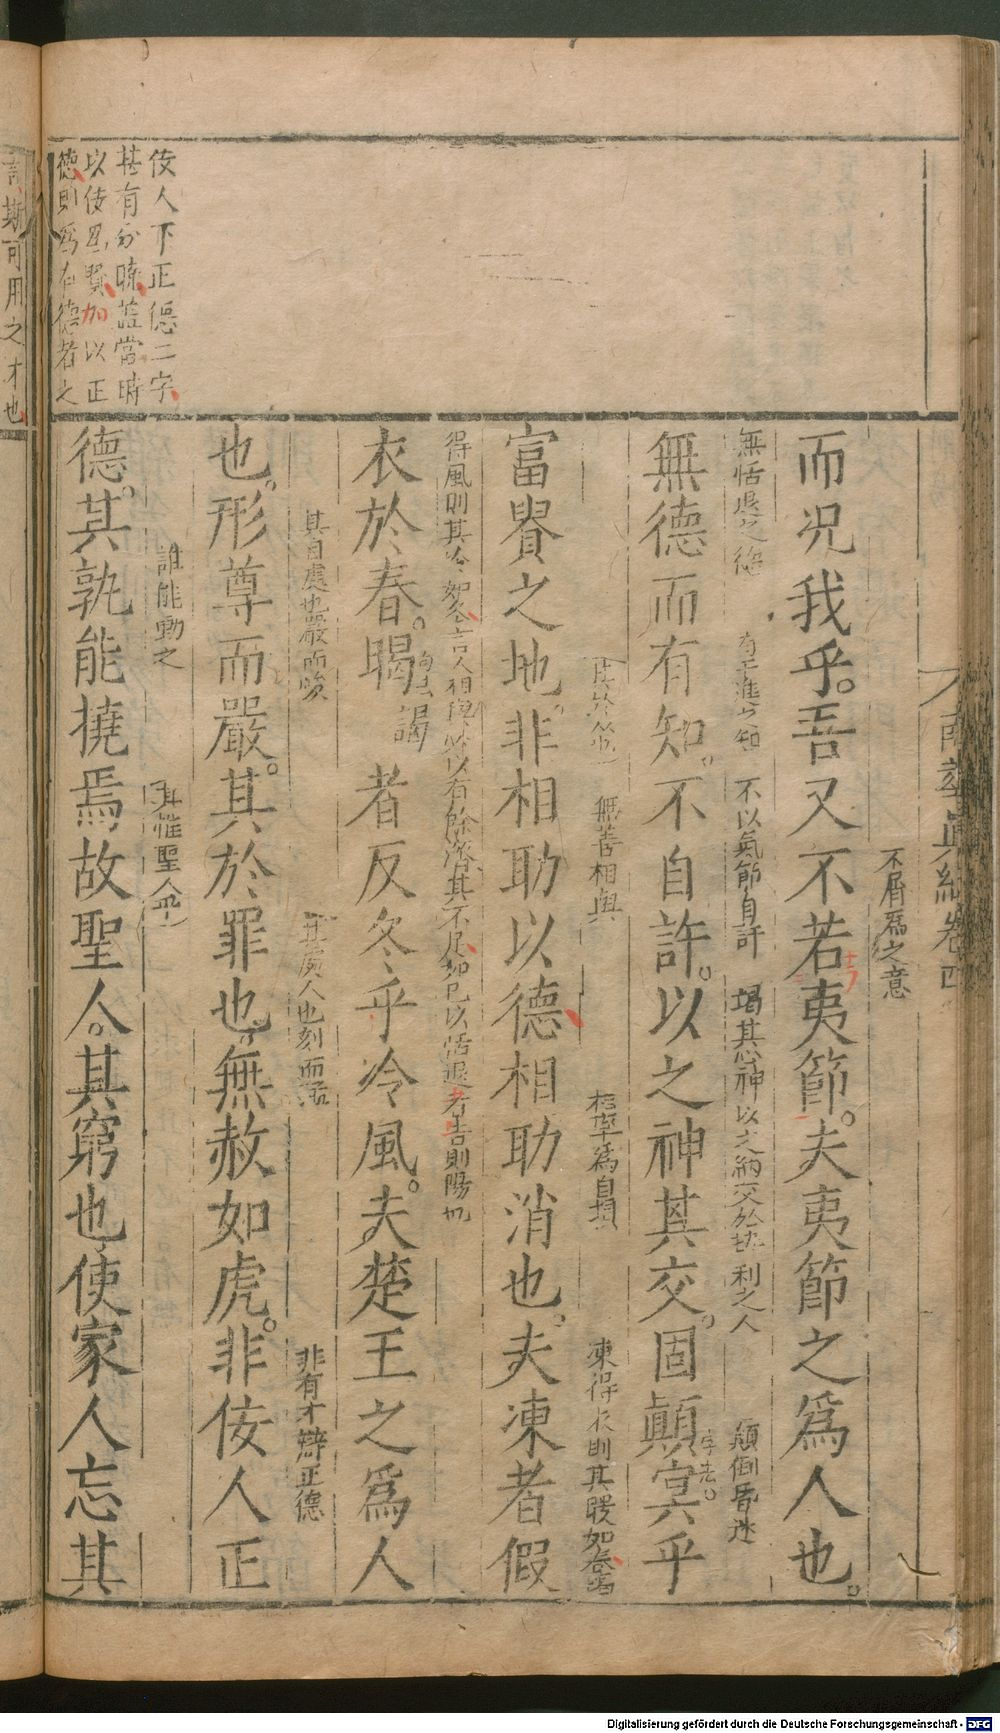 南華真經卷四
不屑爲之意
而况我乎吾又不若夷節夫夷節之爲人也
無恬退之德 有干進之知 不以氣節自許 竭其心神以之納交於執利之人 顛倒昏迷
無德而有知不自許以之神其交固顛冥乎
無善相與 爲自損 凍得衣則其暖如春暍
富貴之地非相助以德相助消也夫凍者假
得風則其冷如冬言人相與以有餘濟其不足如已以恬退者告則陽也
衣於春暍者反冬乎冷風夫楚王之爲人
音謁
其自處也嚴而峻 其戾人也刻而猛 非有才辯正德
也形尊而嚴其於罪也無赦如虎非佞人正
誰能動之 其惟聖人乎
德其孰能撓焉故聖人其窮也使家人忘其
佞人下正德二字
甚有分曉葢當時
以佞爲賢加以正
德則爲有德者之
言斯可用之才也
Digitalisierung gefördert durch die Deutsche Forschungsgemeinschaft - DFG